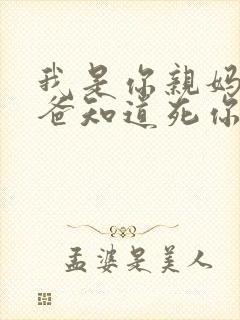 我是你親妈
爸知道死你
孟婆是美人